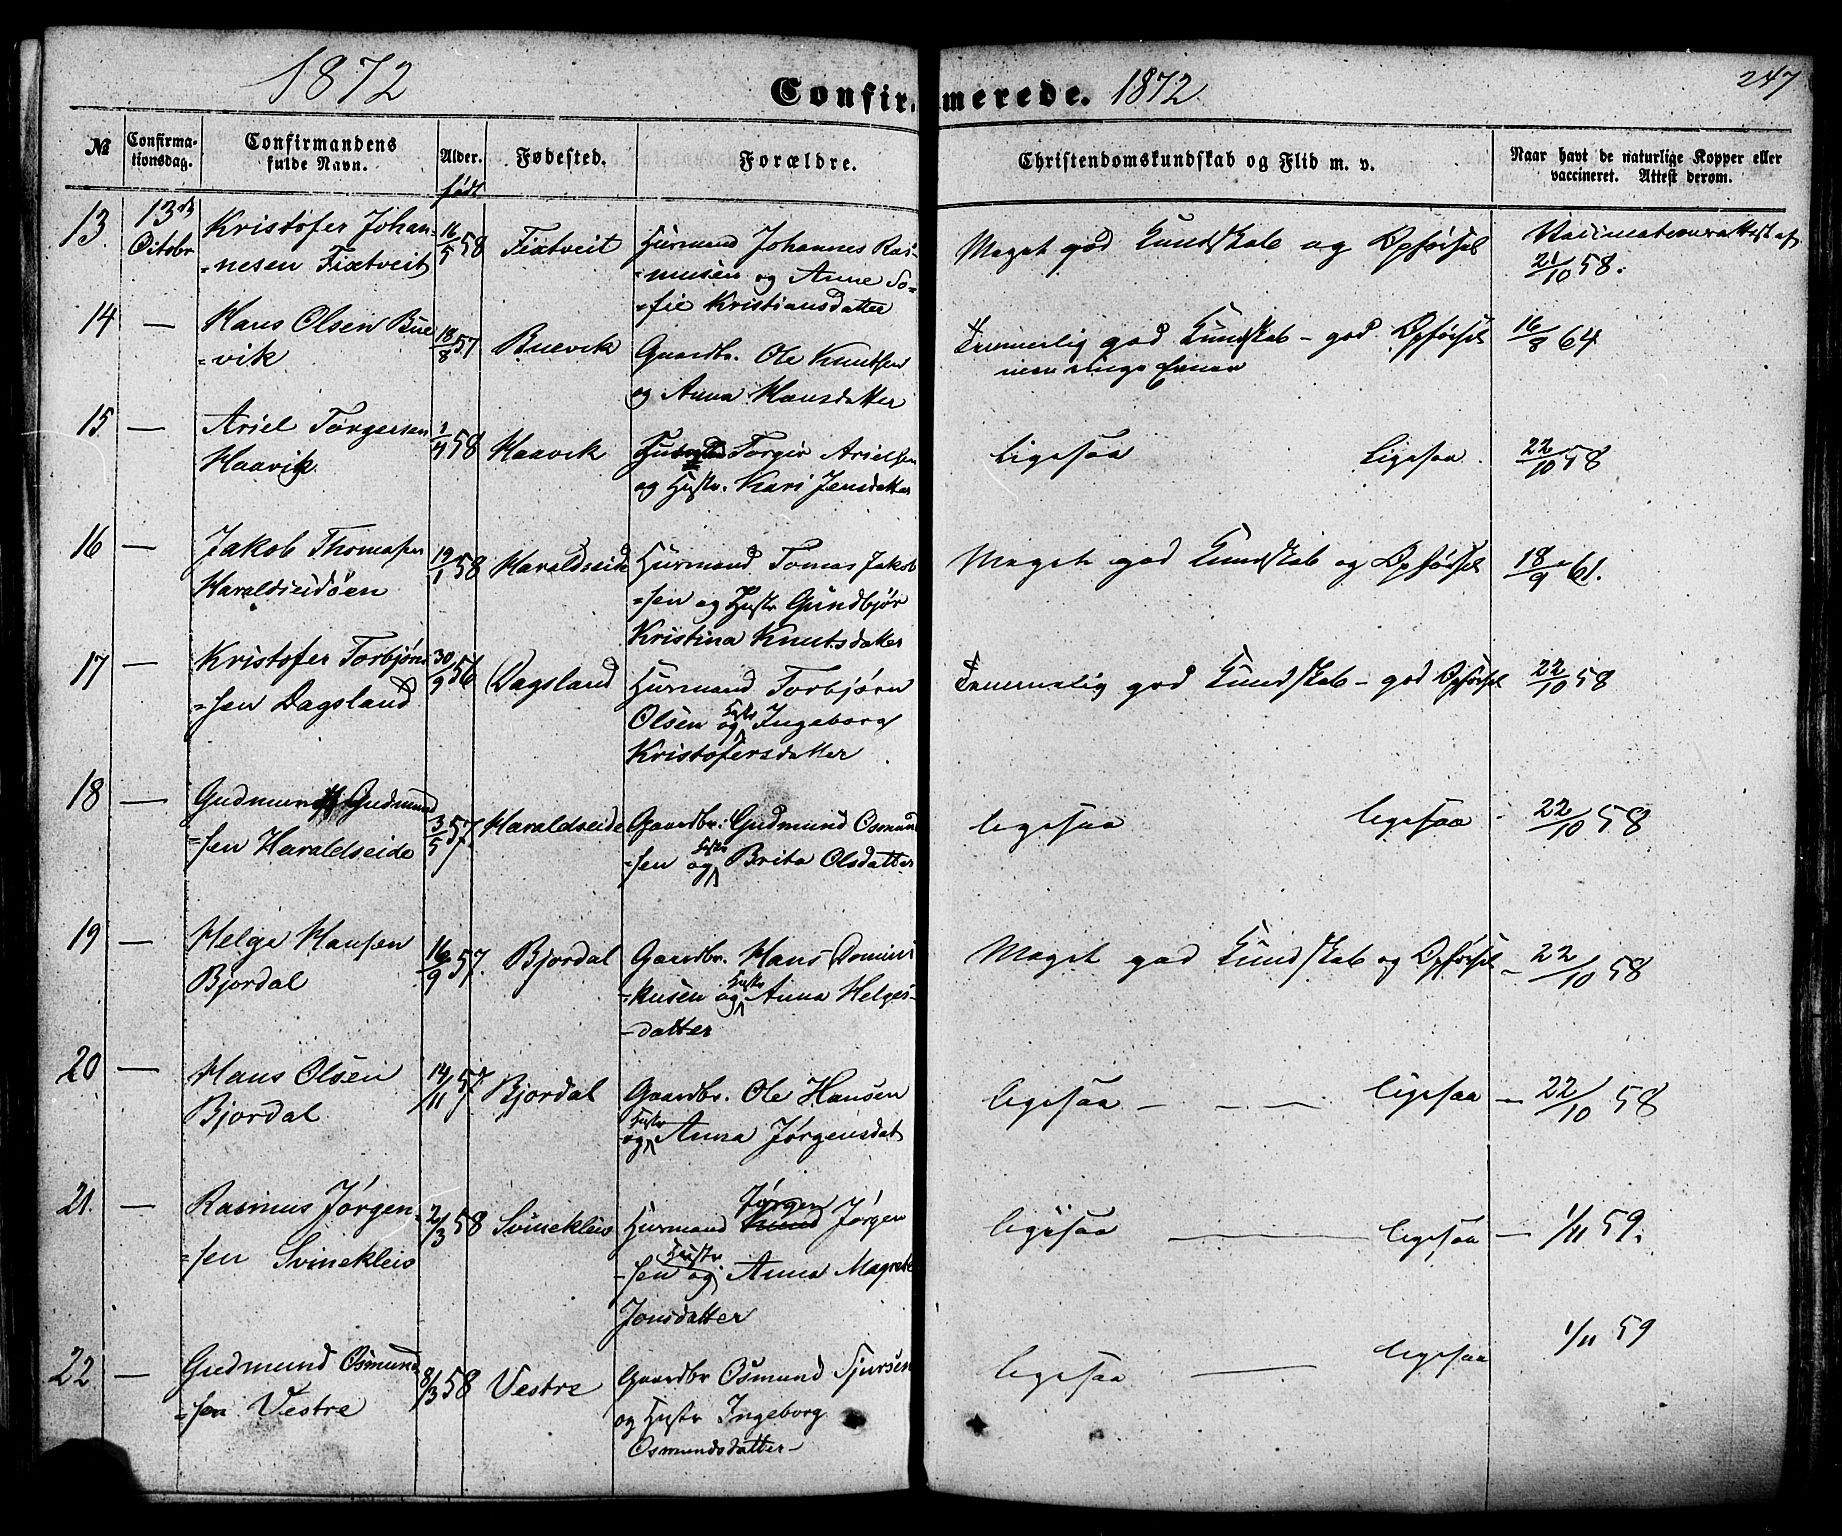 1872
Confirmerede. 1872
247
№
Confirma-
tionsdag.
Confirmandens
fulde Navn.
Alder.
født
Fødested.
Forældre.
Christendomskundskab og Flid m. v.
Naar havt de naturlige Kopper eller
vaccineret. Attest derom.
13. 13de Kristofer Johan- 16/5 58 Fixtveit Huusmand Johannes Ras- Meget god Kundskab og Opførsel Vaccinationsattest af
Octobr =nesen Fixtveit =musen og Anne So- 21/10 58.
=fie Kristiansdatter
14 — Hans Olsen Bue 18/8 57 Buevik Gaardbr. Ole Knutsen Temmelig god Kundskab – god Opførsel 16/8 64
=vik og Anna Hansdatter
15. — Ariel Torgersen 1/4 58 Haavik Torgir Arielsen Ligesaa Ligesaa 22/10 58
Haavik og Hustr. Kari Jensdatter
16 — Jakob Thomasen 19/1 58 Haraldseid Huusmand Tomas Jakob Meget god Kundskab og Opførsel 18/9 61.
Haraldseidøen =sen og Hustr Gundbjør
Kristina Knutsdatter
17 — Kristofer Torbjørn 30/9 56 Dagsland Huusmand Torbjørn Temmelig god Kundskab – god Opførsel 22/10 58
=sen Dagsland Olsen og Hustr Ingeborg
Kristofersdatter
18 — Gudmund Gudmund 3/5 57. Haraldseide Gaardbr. Gudmund Osmund ligesaa ligesaa – 22/10 58
=sen Haraldseide =sen og Hustr Brita Olsdatter
19 — Helge Hansen 16/9 57. Bjordal Gaardbr. Hans Domini Meget god Kundskab og Opførsel – 22/10 58
Bjordal =kusen og Hustr Anna Helges
=datter
20 — Hans Olsen 14/11 57. Bjordal Gaardbr. Ole Hansen ligesaa — ligesaa — 22/10 58
Bjordal og Hustr Anna Jørgensdat
21. — Rasmus Jørgen- 2/3 58 Svinekleis Huusmand Jørgen Jørgen ligesaa — ligesaa — 1/11 59.
=sen Svinekleis =sen og Hustr Anna Magrete
Jonsdatter
22 — Gudmund Osmund 8/3 58 Vestre Gaardbr Osmund Sjursen ligesaa — ligesaa 1/11 59
=sen Vestre og Hustr Ingeborg
Osmundsdatter